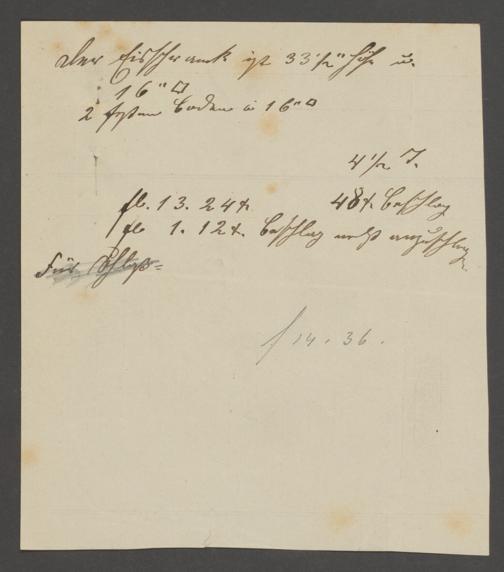 Der Eisschrank ist 33½" hoch u.
16" □
2 Boden à 16" □
4½ T.
fl. 13. 24x. 48x. Beschlag
fl 1. 12x. Beschlag anzuschlag
Für
f 14. 36.